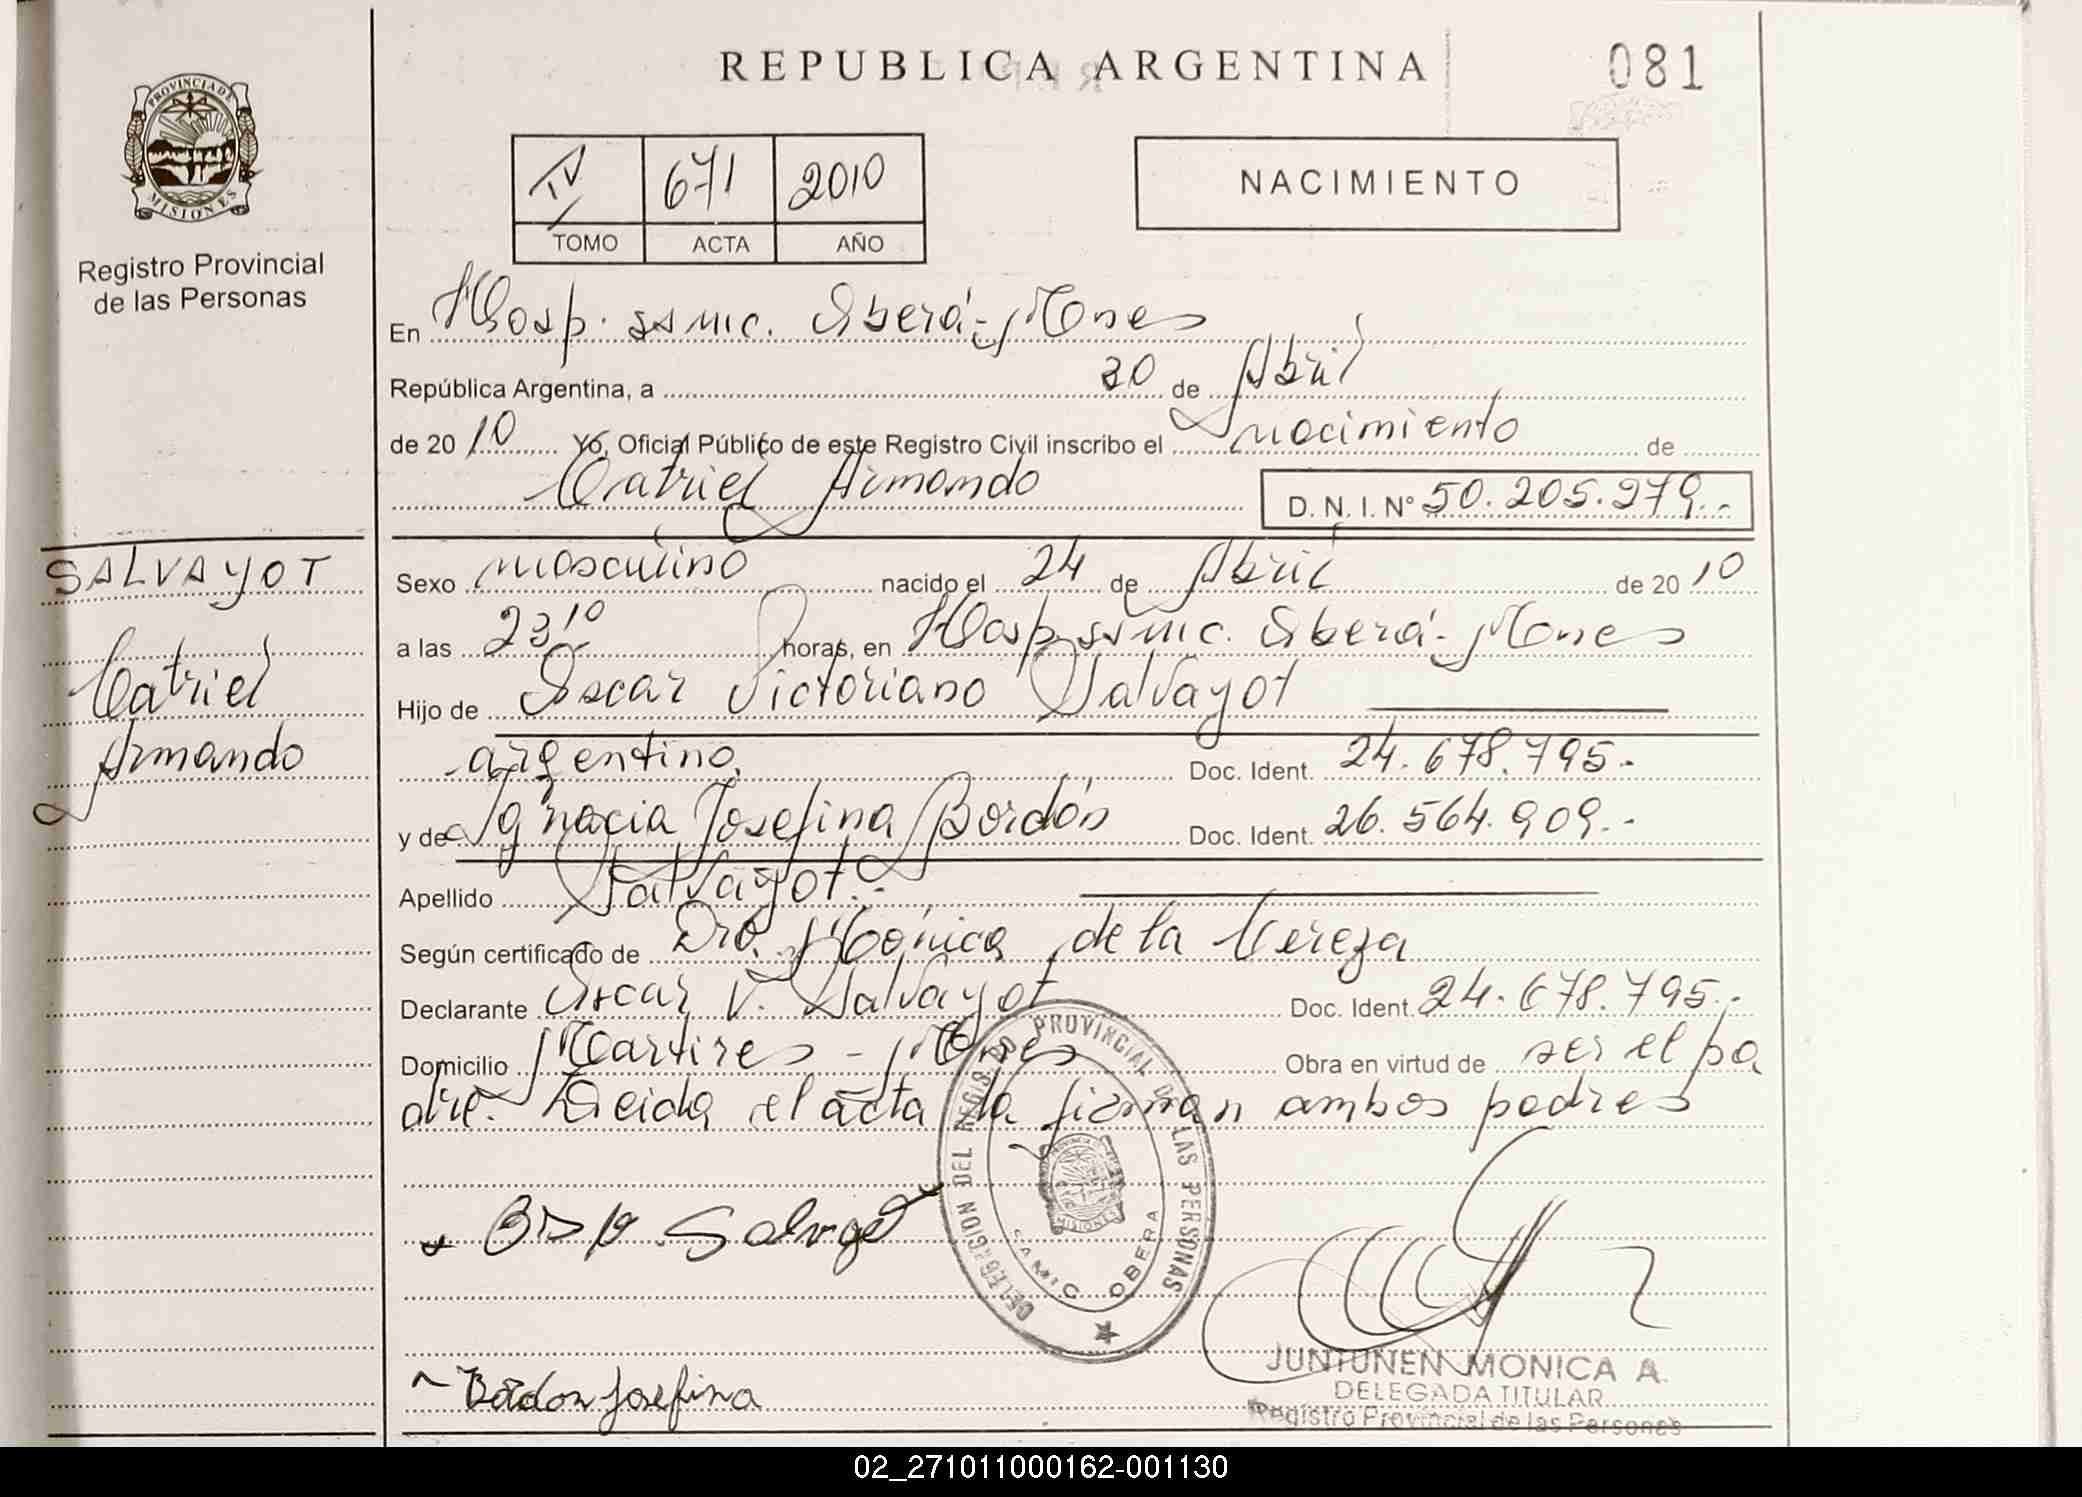 REPUBLICA ARGENTINA
081
PROVINCIA DE MISIONES
Registro Provincial
de las Personas
IV 671 2010
TOMO ACTA AÑO
NACIMIENTO
En Hosp. ssmic. Oberá-Mnes
República Argentina, a 30 de Abril
de 2010 Yo, Oficial Público de este Registro Civil inscribo el nacimiento de
Catriel Armando D. N. I. Nº 50.205.279.-
SALVAYOT
Catriel
Armando
Sexo masculino nacido el 24 de Abril de 2010
a las 23 10 horas, en Hosp. ssmic. Oberá-Mnes
Hijo de Oscar Victoriano Salvayot
argentino. Doc. Ident. 24.678.795.-
y de Ignacia Josefina Bordón Doc. Ident. 26.564.909.-
Apellido Salvayot.-
Según certificado de Dra. Mónica de la Cereza
Declarante Oscar V. Salvayot Doc. Ident. 24.678.795.-
Domicilio Martires - Mnes Obra en virtud de ser el pa
dre. Leida el acta la firman ambos padres
DELEGACION DEL REGISTRO PROVINCIAL DE LAS PERSONAS
SAMIC OBERA
Bordon Josefina
JUNTUNEN MONICA A.
DELEGADA TITULAR
Registro Provincial de las Personas
02_271011000162-001130